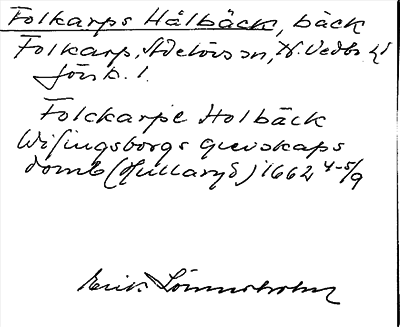 Folkarps Hålbäck, bäck
Folkarp, Adelövs sn, N. Vedbo hd
Jönk. l.
Folckarpe Holbäck
Wisingsborgs grevskaps
domb (Hullaryd) 1662 4-5/9
Erik Lönnerholm